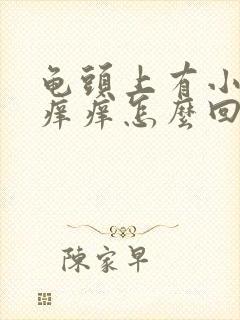 龟頭上有小
痒痒怎麼回
陳家早